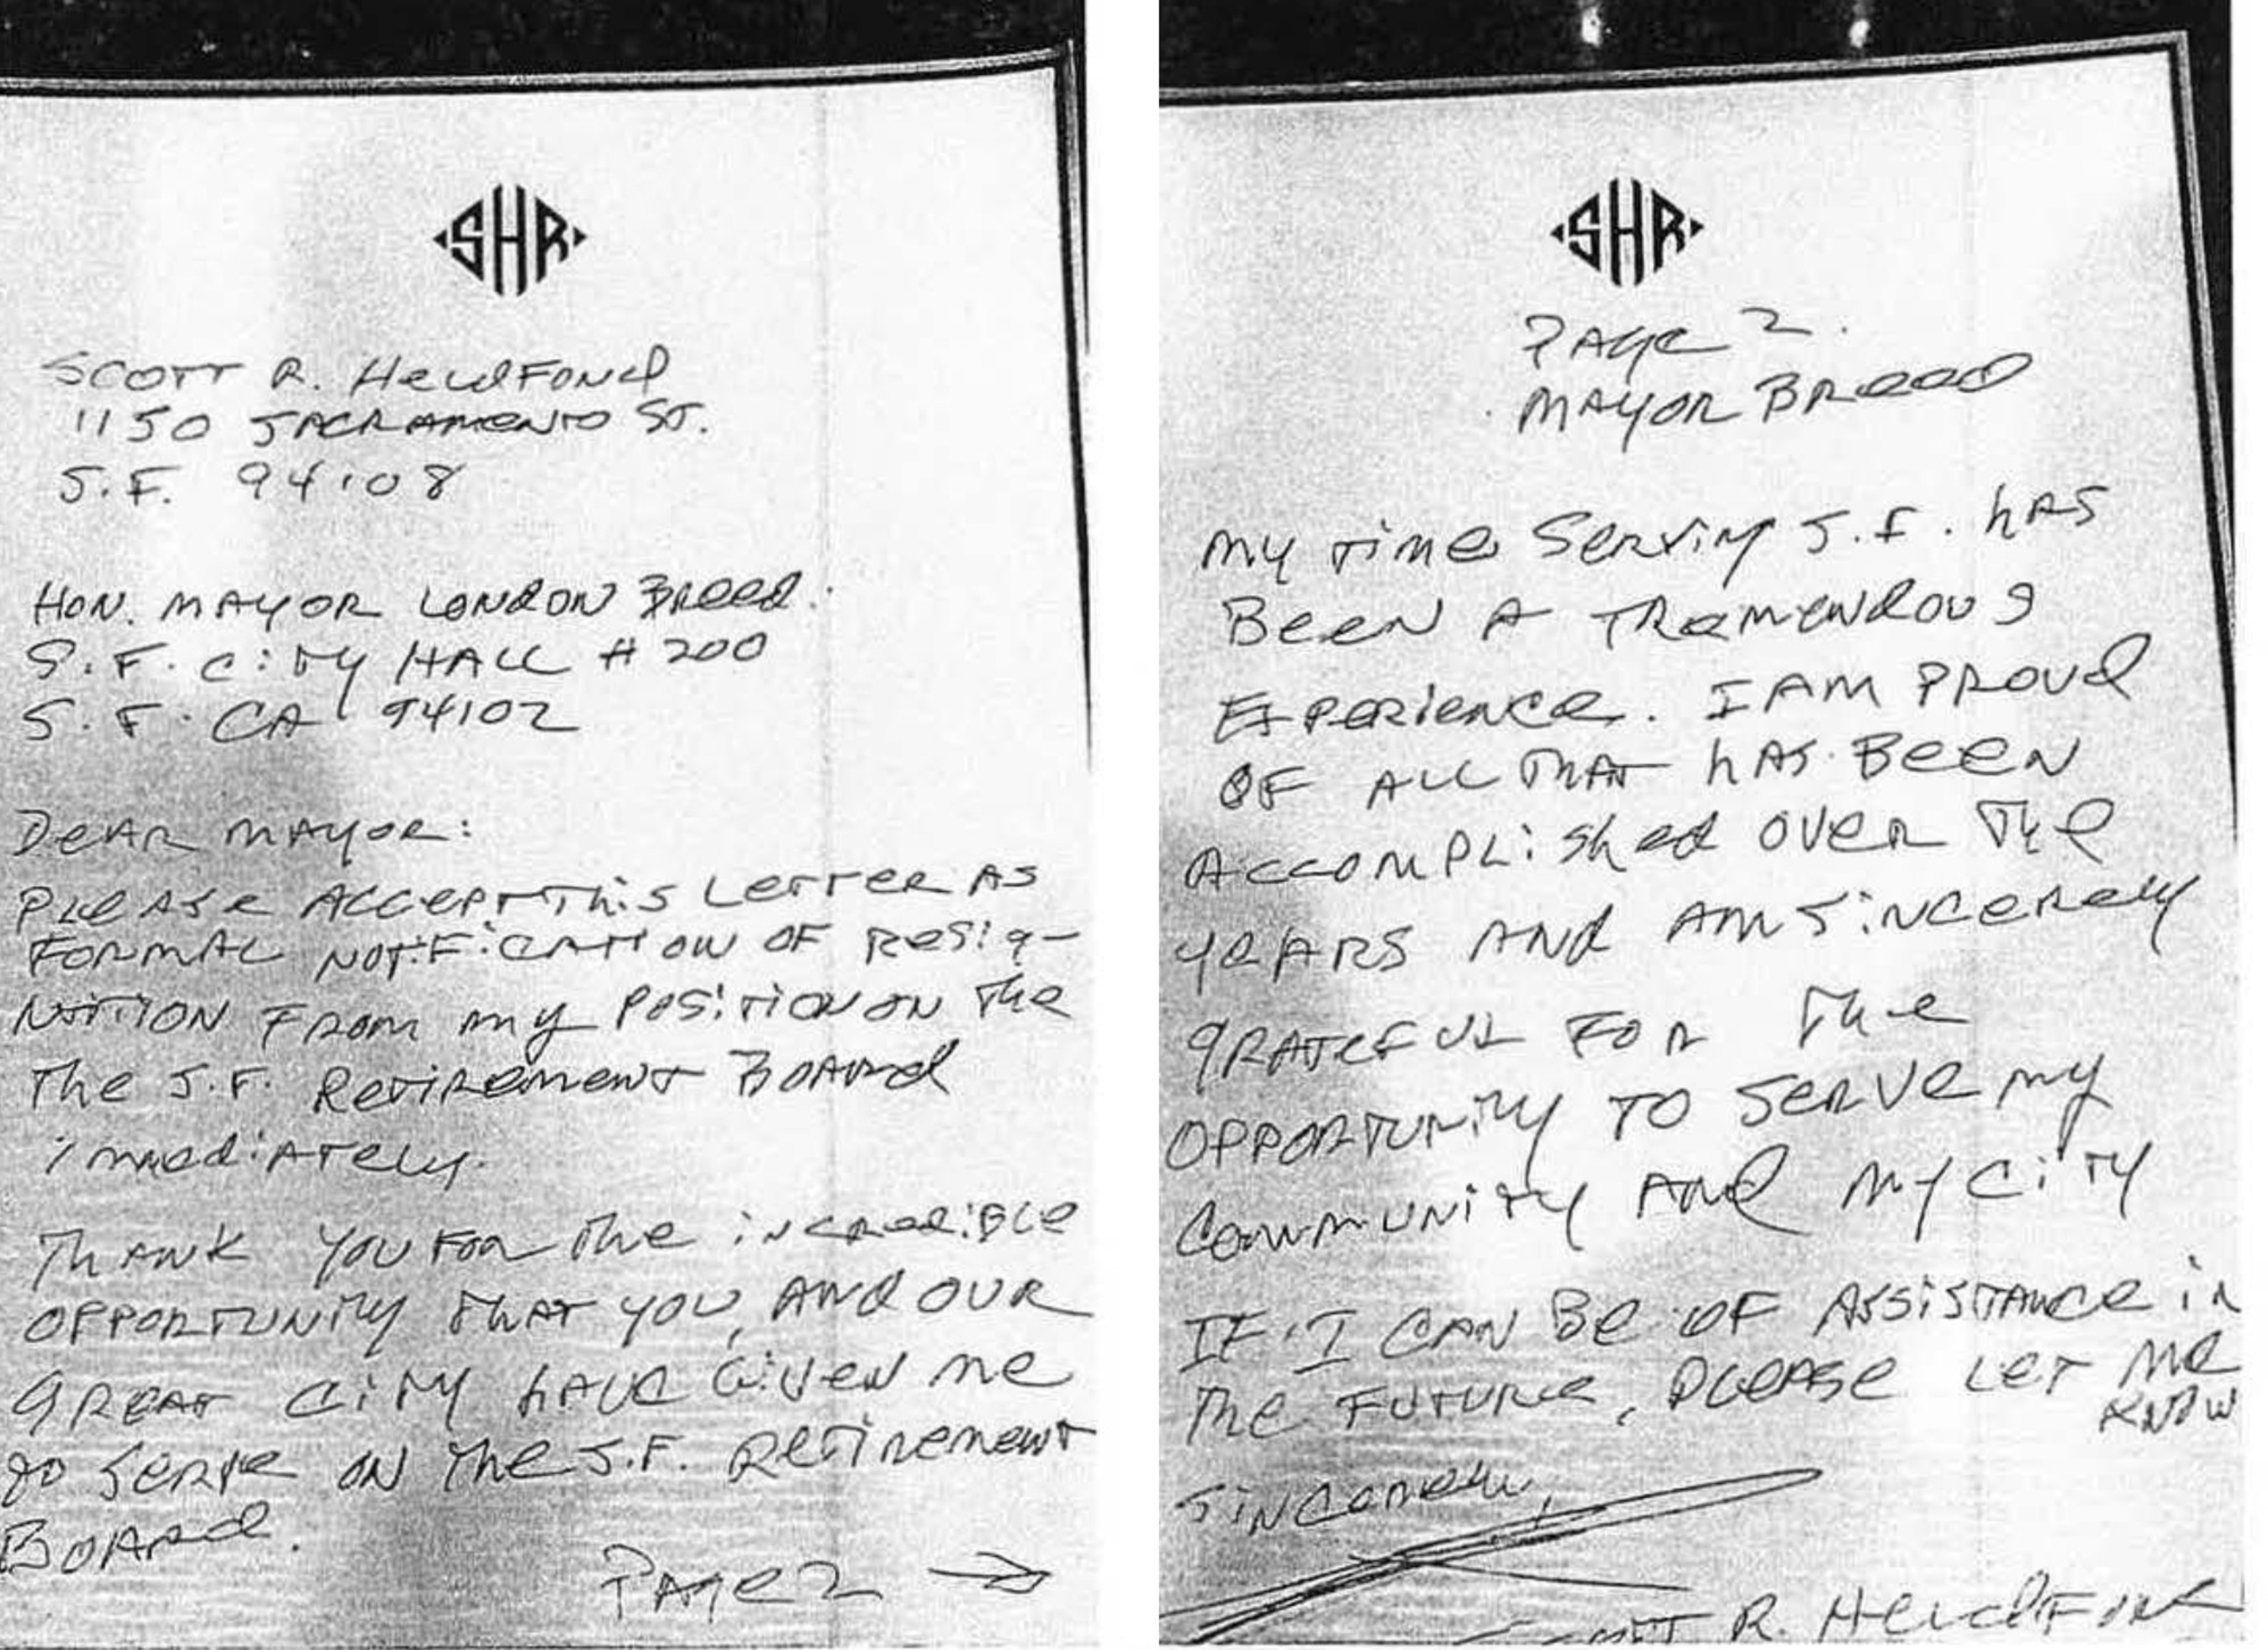 SHR
SCOTT R. HELDFOND
1150 SACRAMENTO ST.
S.F. 94108
HON. MAYOR LONDON BREED.
S.F. CITY HALL # 200
S.F. CA 94102
DEAR MAYOR:
PLEASE ACCEPT THIS LETTER AS
FORMAL NOTIFICATION OF RESIG-
NATION FROM MY POSITION ON THE
THE S.F. RETIREMENT BOARD
IMMEDIATELY.
THANK YOU FOR THE INCREDIBLE
OPPORTUNITY THAT YOU, AND OUR
GREAT CITY HAVE GIVEN ME
TO SERVE ON THE S.F. RETIREMENT
BOARD.
PAGE 2 →
SHR
PAGE 2.
MAYOR BREED
MY TIME SERVING S.F. HAS
BEEN A TREMENDOUS
EXPERIENCE. I AM PROUD
OF ALL THAT HAS BEEN
ACCOMPLISHED OVER THE
YEARS AND AM SINCERELY
GRATEFUL FOR THE
OPPORTUNITY TO SERVE MY
COMMUNITY AND MY CITY
IF I CAN BE OF ASSISTANCE IN
THE FUTURE, PLEASE LET ME
KNOW
SINCERELY,
SCOTT R. HELDFOND